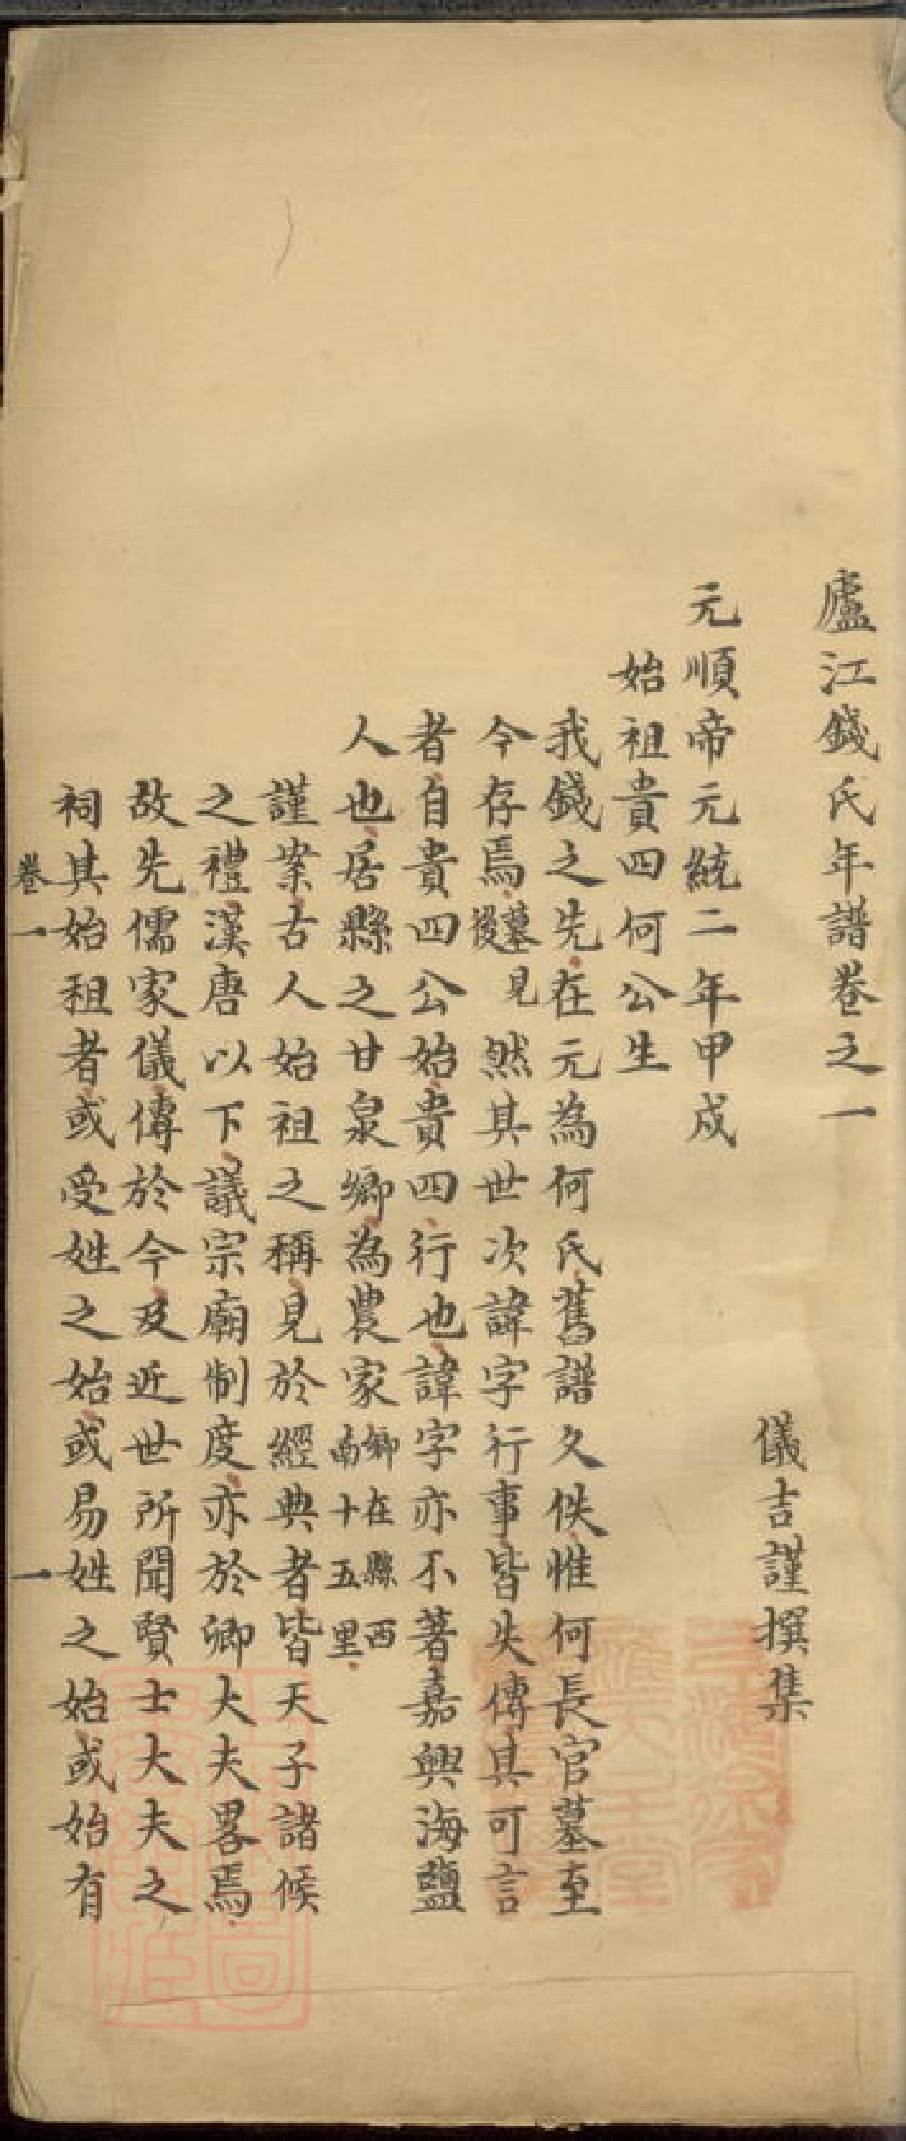 廬江錢氏年譜卷之一
儀吉謹撰集
元順帝元統二年甲戌
始祖貴四何公生
我錢之先在元為何氏舊譜久佚惟何長官墓至
今存焉墓見後然其世次諱字行事皆失傳其可言
者自貴四公始貴四行也諱字亦不著嘉興海鹽
人也居縣之甘泉鄉為農家鄉在縣西南十五里
謹案古人始祖之稱見於經典者皆天子諸候
之禮漢唐以下議宗廟制度亦於卿大夫畧焉
故先儒家儀傳於今及近世所聞賢士大夫之
祠其始祖者或受姓之始或易姓之始或始有
卷一 一